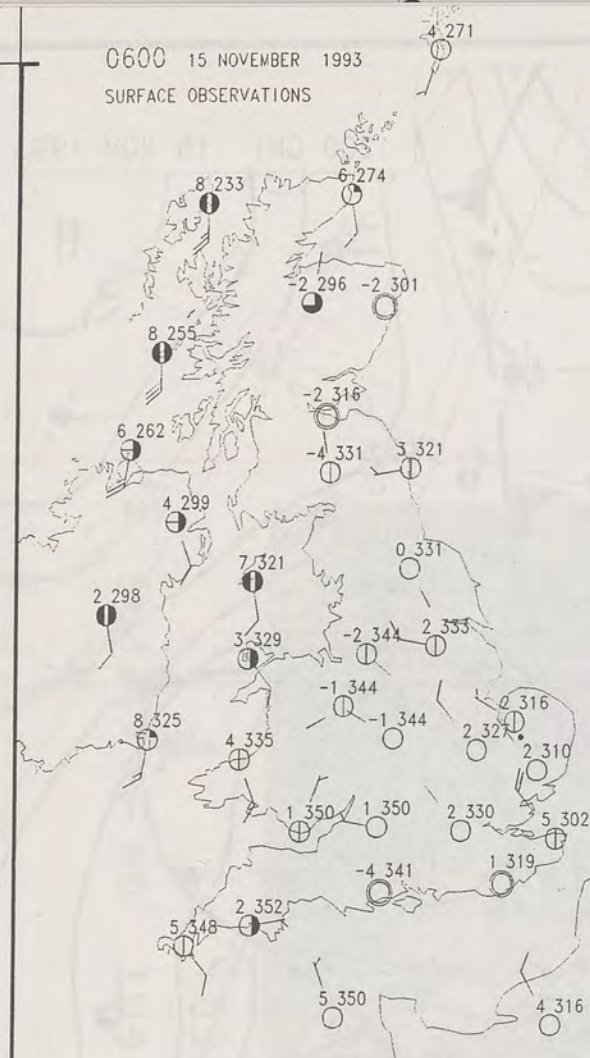 0600 15 NOVEMBER 1993
SURFACE OBSERVATIONS
4 271
6 274
8 233
-2 296
-2 301
8 255
-2 316
6 262
-4 331
3 321
4 299
0 331
7 321
2 298
3 329
-2 344
2 333
-1 344
2 316
8 325
-1 344
2 327
4 335
2 310
1 350
1 350
2 330
5 302
-4 341
1 319
2 352
5 348
5 350
4 316